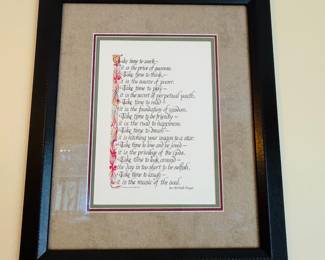 Take time to work—
it is the price of success.
Take time to think—
it is the source of power.
Take time to play—
it is the secret of perpetual youth.
Take time to read—
it is the foundation of wisdom.
Take time to be friendly—
it is the road to happiness.
Take time to dream—
it is hitching your wagon to a star.
Take time to love and be loved—
it is the privilege of the gods.
Take time to look around—
the day is too short to be selfish.
Take time to laugh—
it is the music of the soul.